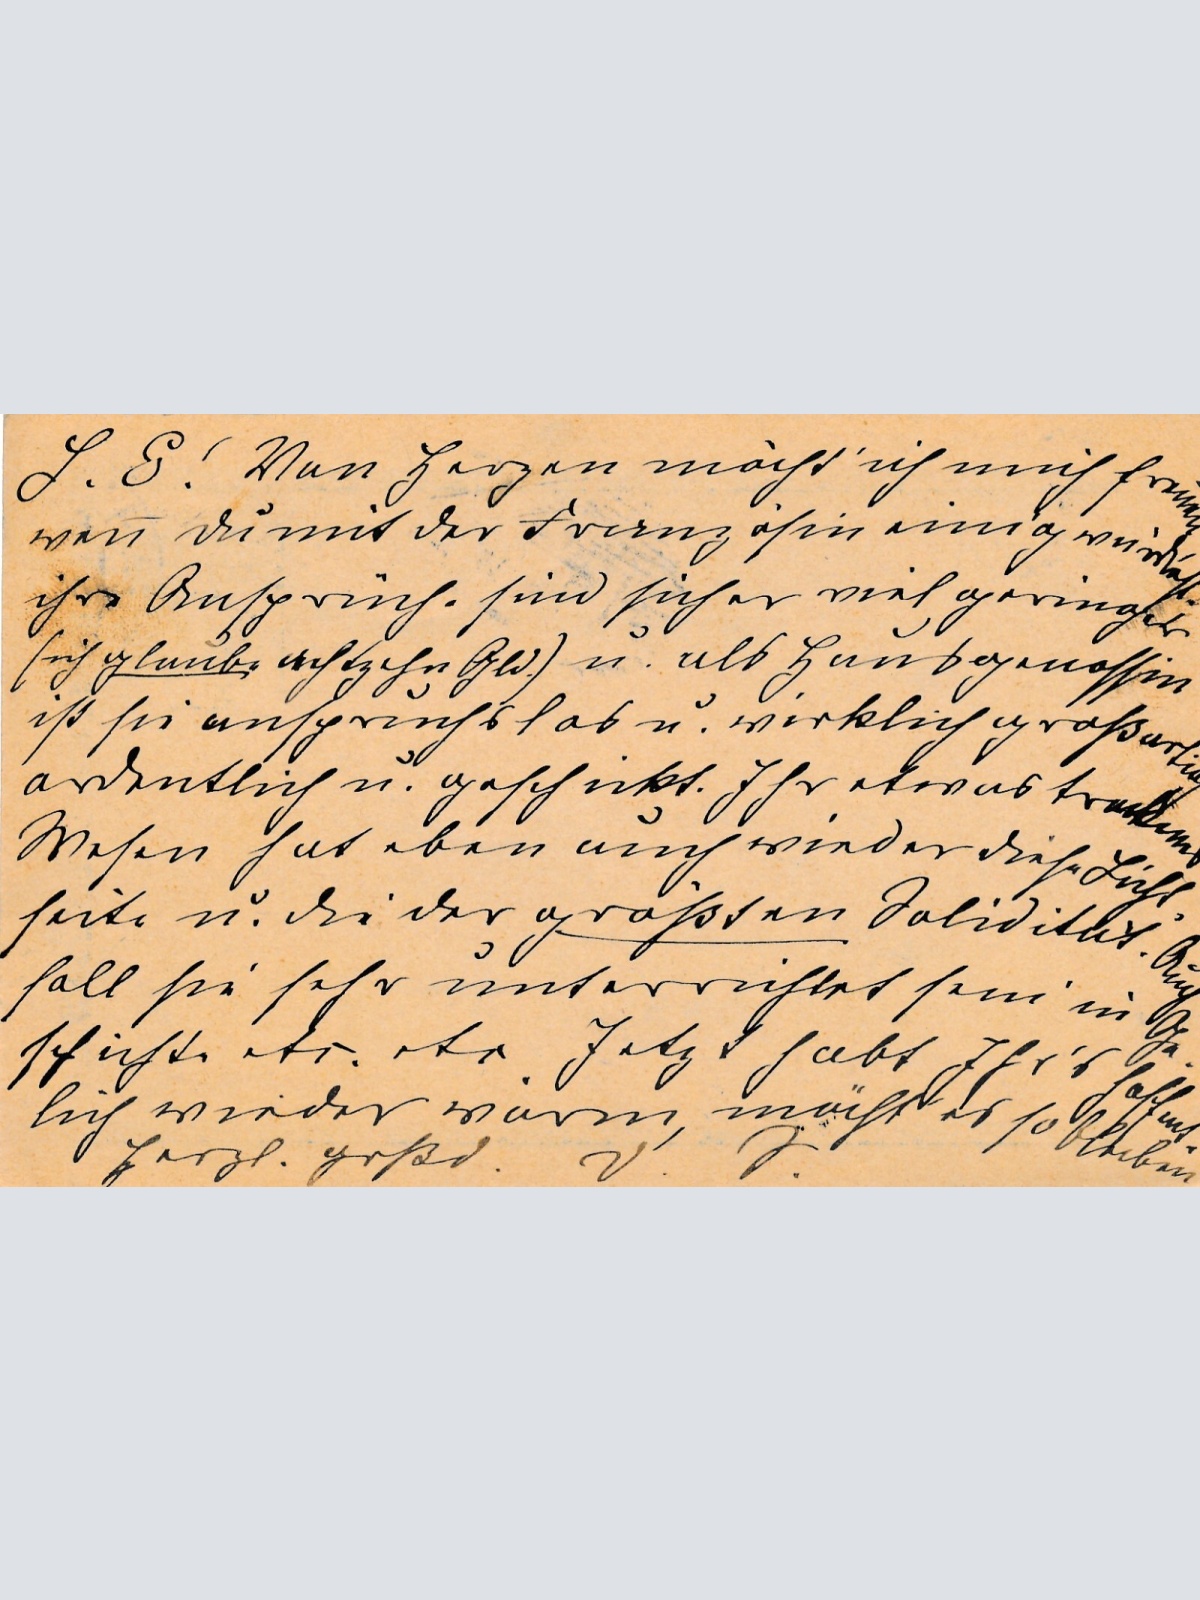 L. E! Von Herzen möcht' ich mich freuen
weñ du mit der Französin einig würdest.
ihre Ansprüche sind sicher viel geringer
(ich glaube achtzehn Gld.) u. als Hausgenossin
ist sie anspruchslos u. wirklich großartig
ordentlich u. geschickt. Ihr etwas trockenes
Wesen hat eben auch wieder diese Licht-
seite u. die der größten Solidität. Auch
soll sie sehr unterrichtet sein in Ge-
schichte etc. etc. Jetzt habt Ihr's hoffent-
lich wieder warm, möcht' es so bleiben
Herzl. grßd. V. S.